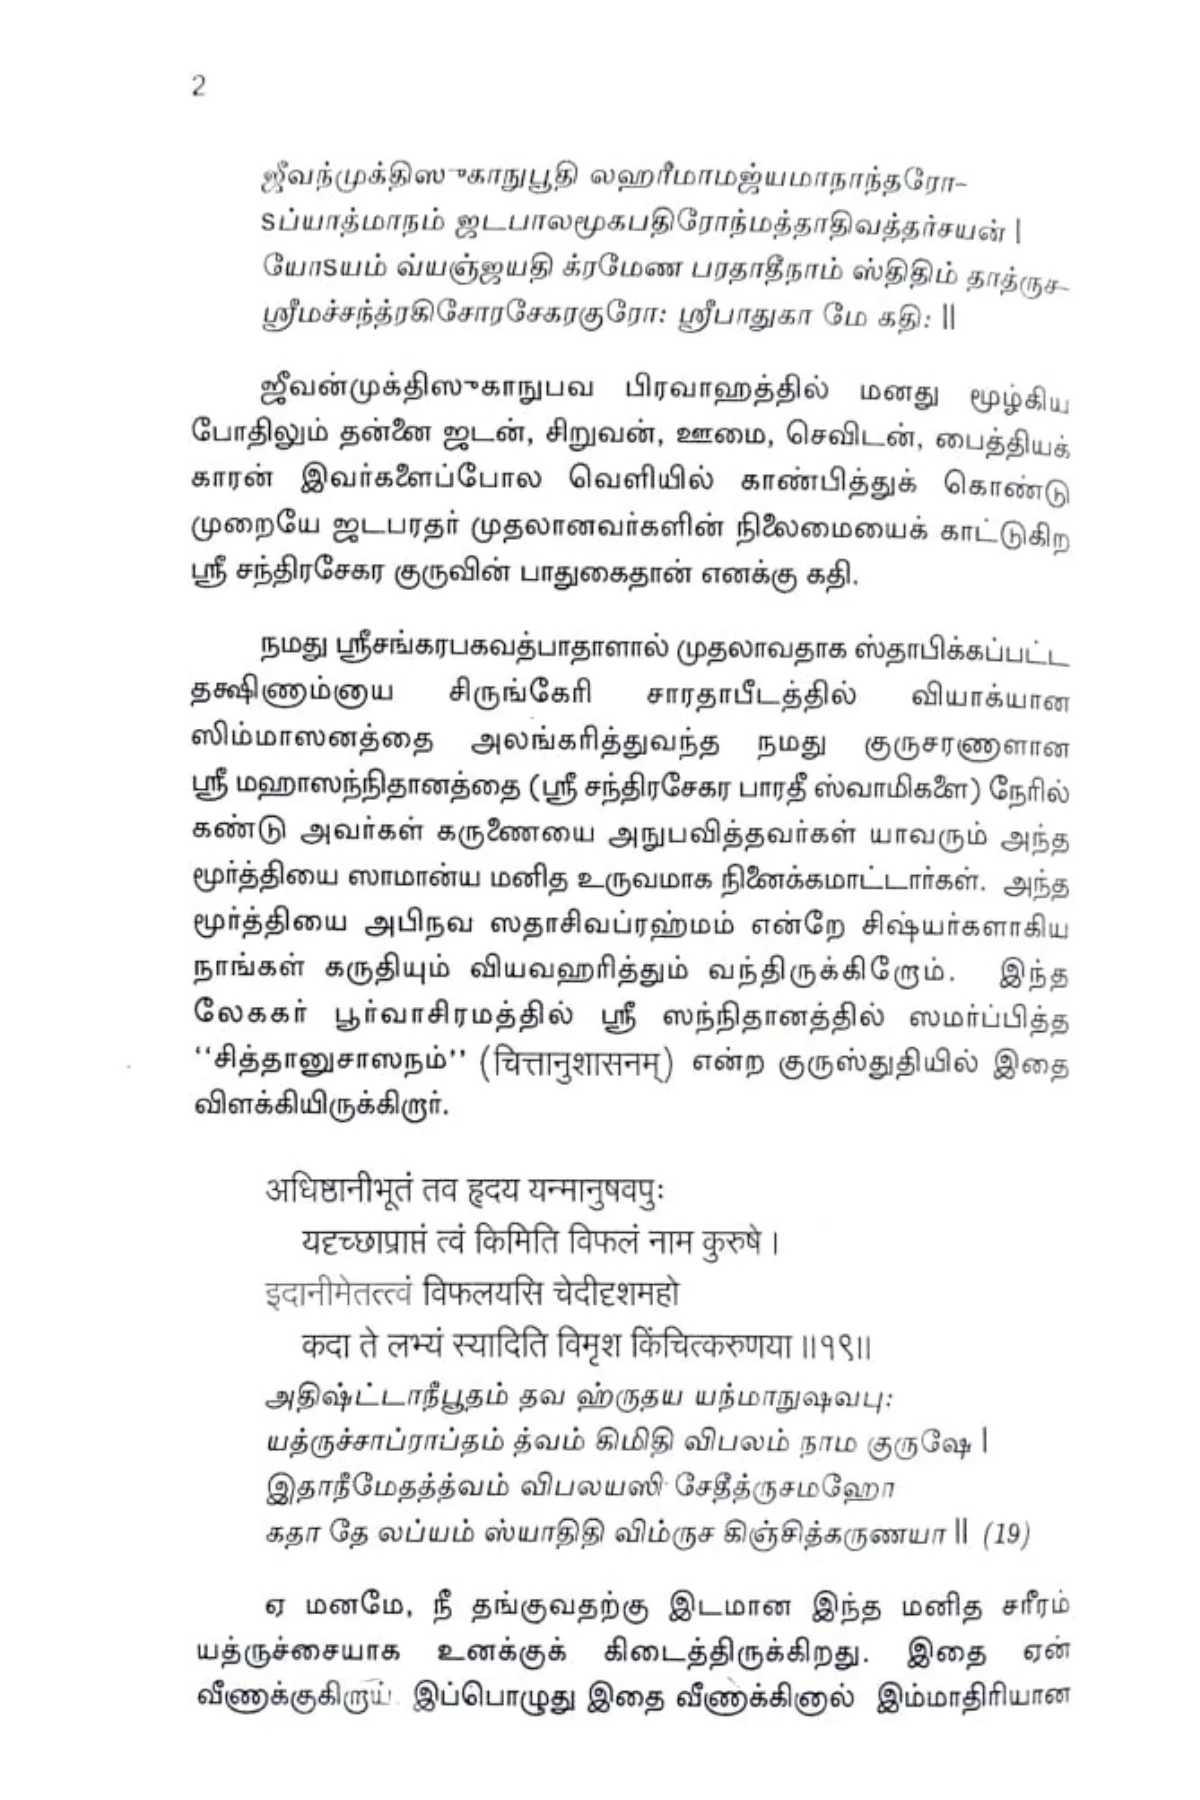 2
ஜீவந்முக்திஸுகாநுபூதி லஹரீமாமஜ்யமாநாந்தரோ-
ऽப்யாத்மாநம் ஜடபாலமூகபதிரோந்மத்தாதிவத்தர்சயன் |
யோऽயம் வ்யஞ்ஜயதி க்ரமேண பரதாதீநாம் ஸ்திதிம் தாத்ருச-
ஸ்ரீமச்சந்த்ரகிசோரசேகரகுரோ: ஸ்ரீபாதுகா மே கதி: ||
ஜீவன்முக்திஸுகாநுபவ பிரவாஹத்தில் மனது மூழ்கிய
போதிலும் தன்னை ஜடன், சிறுவன், ஊமை, செவிடன், பைத்தியக்
காரன் இவர்களைப்போல வெளியில் காண்பித்துக் கொண்டு
முறையே ஜடபரதர் முதலானவர்களின் நிலைமையைக் காட்டுகிற
ஸ்ரீ சந்திரசேகர குருவின் பாதுகைதான் எனக்கு கதி.
நமது ஸ்ரீசங்கரபகவத்பாதாளால் முதலாவதாக ஸ்தாபிக்கப்பட்ட
தக்ஷிணாம்னாய சிருங்கேரி சாரதாபீடத்தில் வியாக்யான
ஸிம்மாஸனத்தை அலங்கரித்துவந்த நமது குருசரணாளான
ஸ்ரீ மஹாஸந்நிதானத்தை (ஸ்ரீ சந்திரசேகர பாரதீ ஸ்வாமிகளை) நேரில்
கண்டு அவர்கள் கருணையை அநுபவித்தவர்கள் யாவரும் அந்த
மூர்த்தியை ஸாமான்ய மனித உருவமாக நினைக்கமாட்டார்கள். அந்த
மூர்த்தியை அபிநவ ஸதாசிவப்ரஹ்மம் என்றே சிஷ்யர்களாகிய
நாங்கள் கருதியும் வியவஹரித்தும் வந்திருக்கிறோம். இந்த
லேககர் பூர்வாசிரமத்தில் ஸ்ரீ ஸந்நிதானத்தில் ஸமர்ப்பித்த
“சித்தானுசாஸநம்” (चित्तानुशासनम्) என்ற குருஸ்துதியில் இதை
விளக்கியிருக்கிறார்.
अधिष्ठानीभूतं तव हृदय यन्मानुषवपुः
यदृच्छाप्राप्तं त्वं किमिति विफलं नाम कुरुषे ।
इदानीमेतत्त्वं विफलयसि चेदीदृशमहो
कदा ते लभ्यं स्यादिति विमृश किंचित्करुणया ॥१९॥
அதிஷ்ட்டாநீபூதம் தவ ஹ்ருதய யந்மாநுஷவபு:
யத்ருச்சாப்ராப்தம் த்வம் கிமிதி விபலம் நாம குருஷே |
இதாநீமேதத்த்வம் விபலயஸி சேதீத்ருசமஹோ
கதா தே லப்யம் ஸ்யாதிதி விம்ருச கிஞ்சித்கருணயா || (19)
ஏ மனமே, நீ தங்குவதற்கு இடமான இந்த மனித சரீரம்
யத்ருச்சையாக உனக்குக் கிடைத்திருக்கிறது. இதை ஏன்
வீணாக்குகிறாய். இப்பொழுது இதை வீணாக்கினால் இம்மாதிரியான